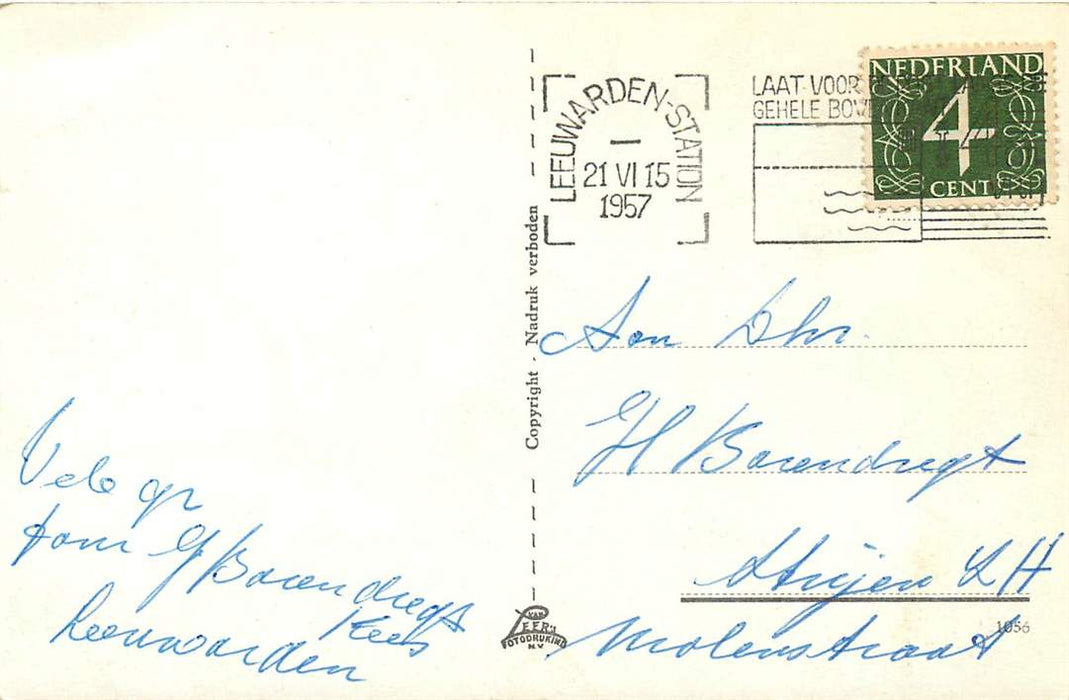 NEDERLAND
4
CENT
LEEUWARDEN-STATION
21 VI 15
1957
LAAT VOOR
GEHELE
Copyright - Nadruk verboden
Aan Dhr.
H Barendregt
Strijen ZH
Molenstraat
Vele gr
fam G Barendregt
Kees
Leeuwarden
VAN
LEER'S
FOTODRUKIND
N.V.
1056